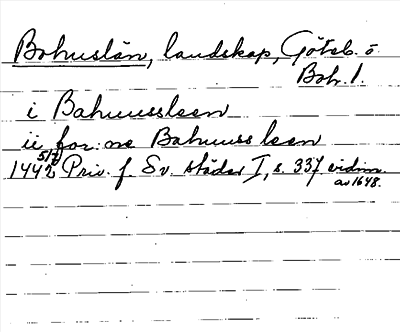 Bohuslän, landskap, Göteb. o
Boh. l.
i Bahuussleen
ii for:ne Bahuuss leen
1442 5/7 Priv. f. Sv. städer I, s. 337 vidim.
av 1648.